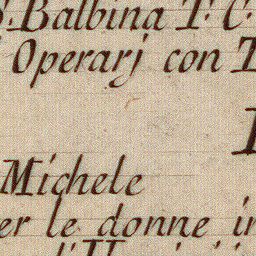 Balbina T. C.
Operarj con
Michele
er le donne in